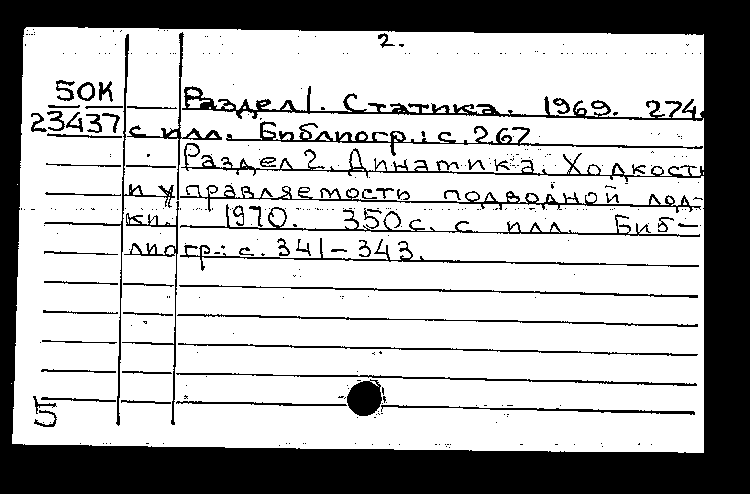 2.
50К
23437
Раздел 1. Статика. 1969. 274
с илл. Библиогр.: с. 267
Раздел 2. Динатика. Ходкость
и управляемость подводной лод-
ки. 1970. 350 с. с илл. Биб-
лиогр.: с. 341-343.
5